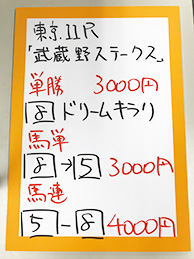 東京11R
「武蔵野ステークス」
単勝 3000円
8 ドリームキラリ
馬単
8→5 3000円
馬連
5-8 4000円